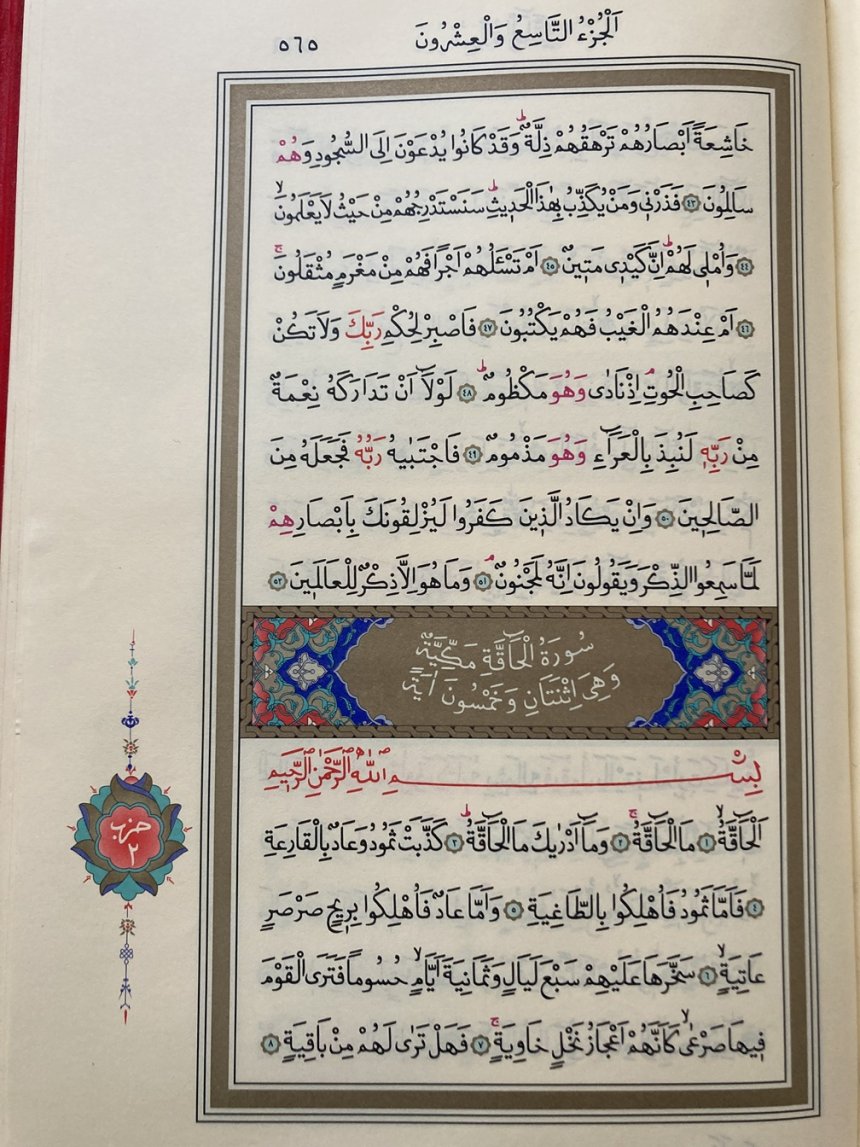 اَلْجُزْءُ التَّاسِعُ وَالْعِشْرُونَ
٥٦٥
خَاشِعَةً اَبْصَارُهُمْ تَرْهَقُهُمْ ذِلَّةٌۜ وَقَدْ كَانُوا يُدْعَوْنَ اِلَى السُّجُودِ وَهُمْ
سَالِمُونَ ﴿٤٣﴾ فَذَرْن۪ي وَمَنْ يُكَذِّبُ بِهٰذَا الْحَد۪يثِۜ سَنَسْتَدْرِجُهُمْ مِنْ حَيْثُ لَا يَعْلَمُونَۙ
﴿٤٤﴾ وَاُمْل۪ي لَهُمْۜ اِنَّ كَيْد۪ي مَت۪ينٌ ﴿٤٥﴾ اَمْ تَسْـَٔلُهُمْ اَجْرًا فَهُمْ مِنْ مَغْرَمٍ مُثْقَلُونَۚ
﴿٤٦﴾ اَمْ عِنْدَهُمُ الْغَيْبُ فَهُمْ يَكْتُبُونَ ﴿٤٧﴾ فَاصْبِرْ لِحُكْمِ رَبِّكَ وَلَا تَكُنْ
كَصَاحِبِ الْحُوتِۢ اِذْ نَادٰى وَهُوَ مَكْظُومٌۜ ﴿٤٨﴾ لَوْلَٓا اَنْ تَدَارَكَهُ نِعْمَةٌ
مِنْ رَبِّه۪ لَنُبِذَ بِالْعَرَٓاءِ وَهُوَ مَذْمُومٌ ﴿٤٩﴾ فَاجْتَبٰيهُ رَبُّهُ فَجَعَلَهُ مِنَ
الصَّالِح۪ينَ ﴿٥٠﴾ وَاِنْ يَكَادُ الَّذ۪ينَ كَفَرُوا لَيُزْلِقُونَكَ بِاَبْصَارِهِمْ
لَمَّا سَمِعُوا الذِّكْرَ وَيَقُولُونَ اِنَّهُ لَمَجْنُونٌۢ ﴿٥١﴾ وَمَا هُوَ اِلَّا ذِكْرٌ لِلْعَالَم۪ينَ ﴿٥٢﴾
سُورَةُ الْحَٓاقَّةِ مَكِّيَّةٌ
وَهِيَ اثْنَتَانِ وَخَمْسُونَ اٰيَةً
بِسْمِ اللّٰهِ الرَّحْمٰنِ الرَّح۪يمِ
اَلْحَٓاقَّةُۙ ﴿١﴾ مَا الْحَٓاقَّةُۚ ﴿٢﴾ وَمَٓا اَدْرٰيكَ مَا الْحَٓاقَّةُۜ ﴿٣﴾ كَذَّبَتْ ثَمُودُ وَعَادٌ بِالْقَارِعَةِ
﴿٤﴾ فَاَمَّا ثَمُودُ فَاُهْلِكُوا بِالطَّاغِيَةِ ﴿٥﴾ وَاَمَّا عَادٌ فَاُهْلِكُوا بِر۪يحٍ صَرْصَرٍ
عَاتِيَةٍۙ ﴿٦﴾ سَخَّرَهَا عَلَيْهِمْ سَبْعَ لَيَالٍ وَثَمَانِيَةَ اَيَّامٍۙ حُسُومًا فَتَرَى الْقَوْمَ
ف۪يهَا صَرْعٰىۙ كَاَنَّهُمْ اَعْجَازُ نَخْلٍ خَاوِيَةٍۚ ﴿٧﴾ فَهَلْ تَرٰى لَهُمْ مِنْ بَاقِيَةٍ ﴿٨﴾
حزب
٢